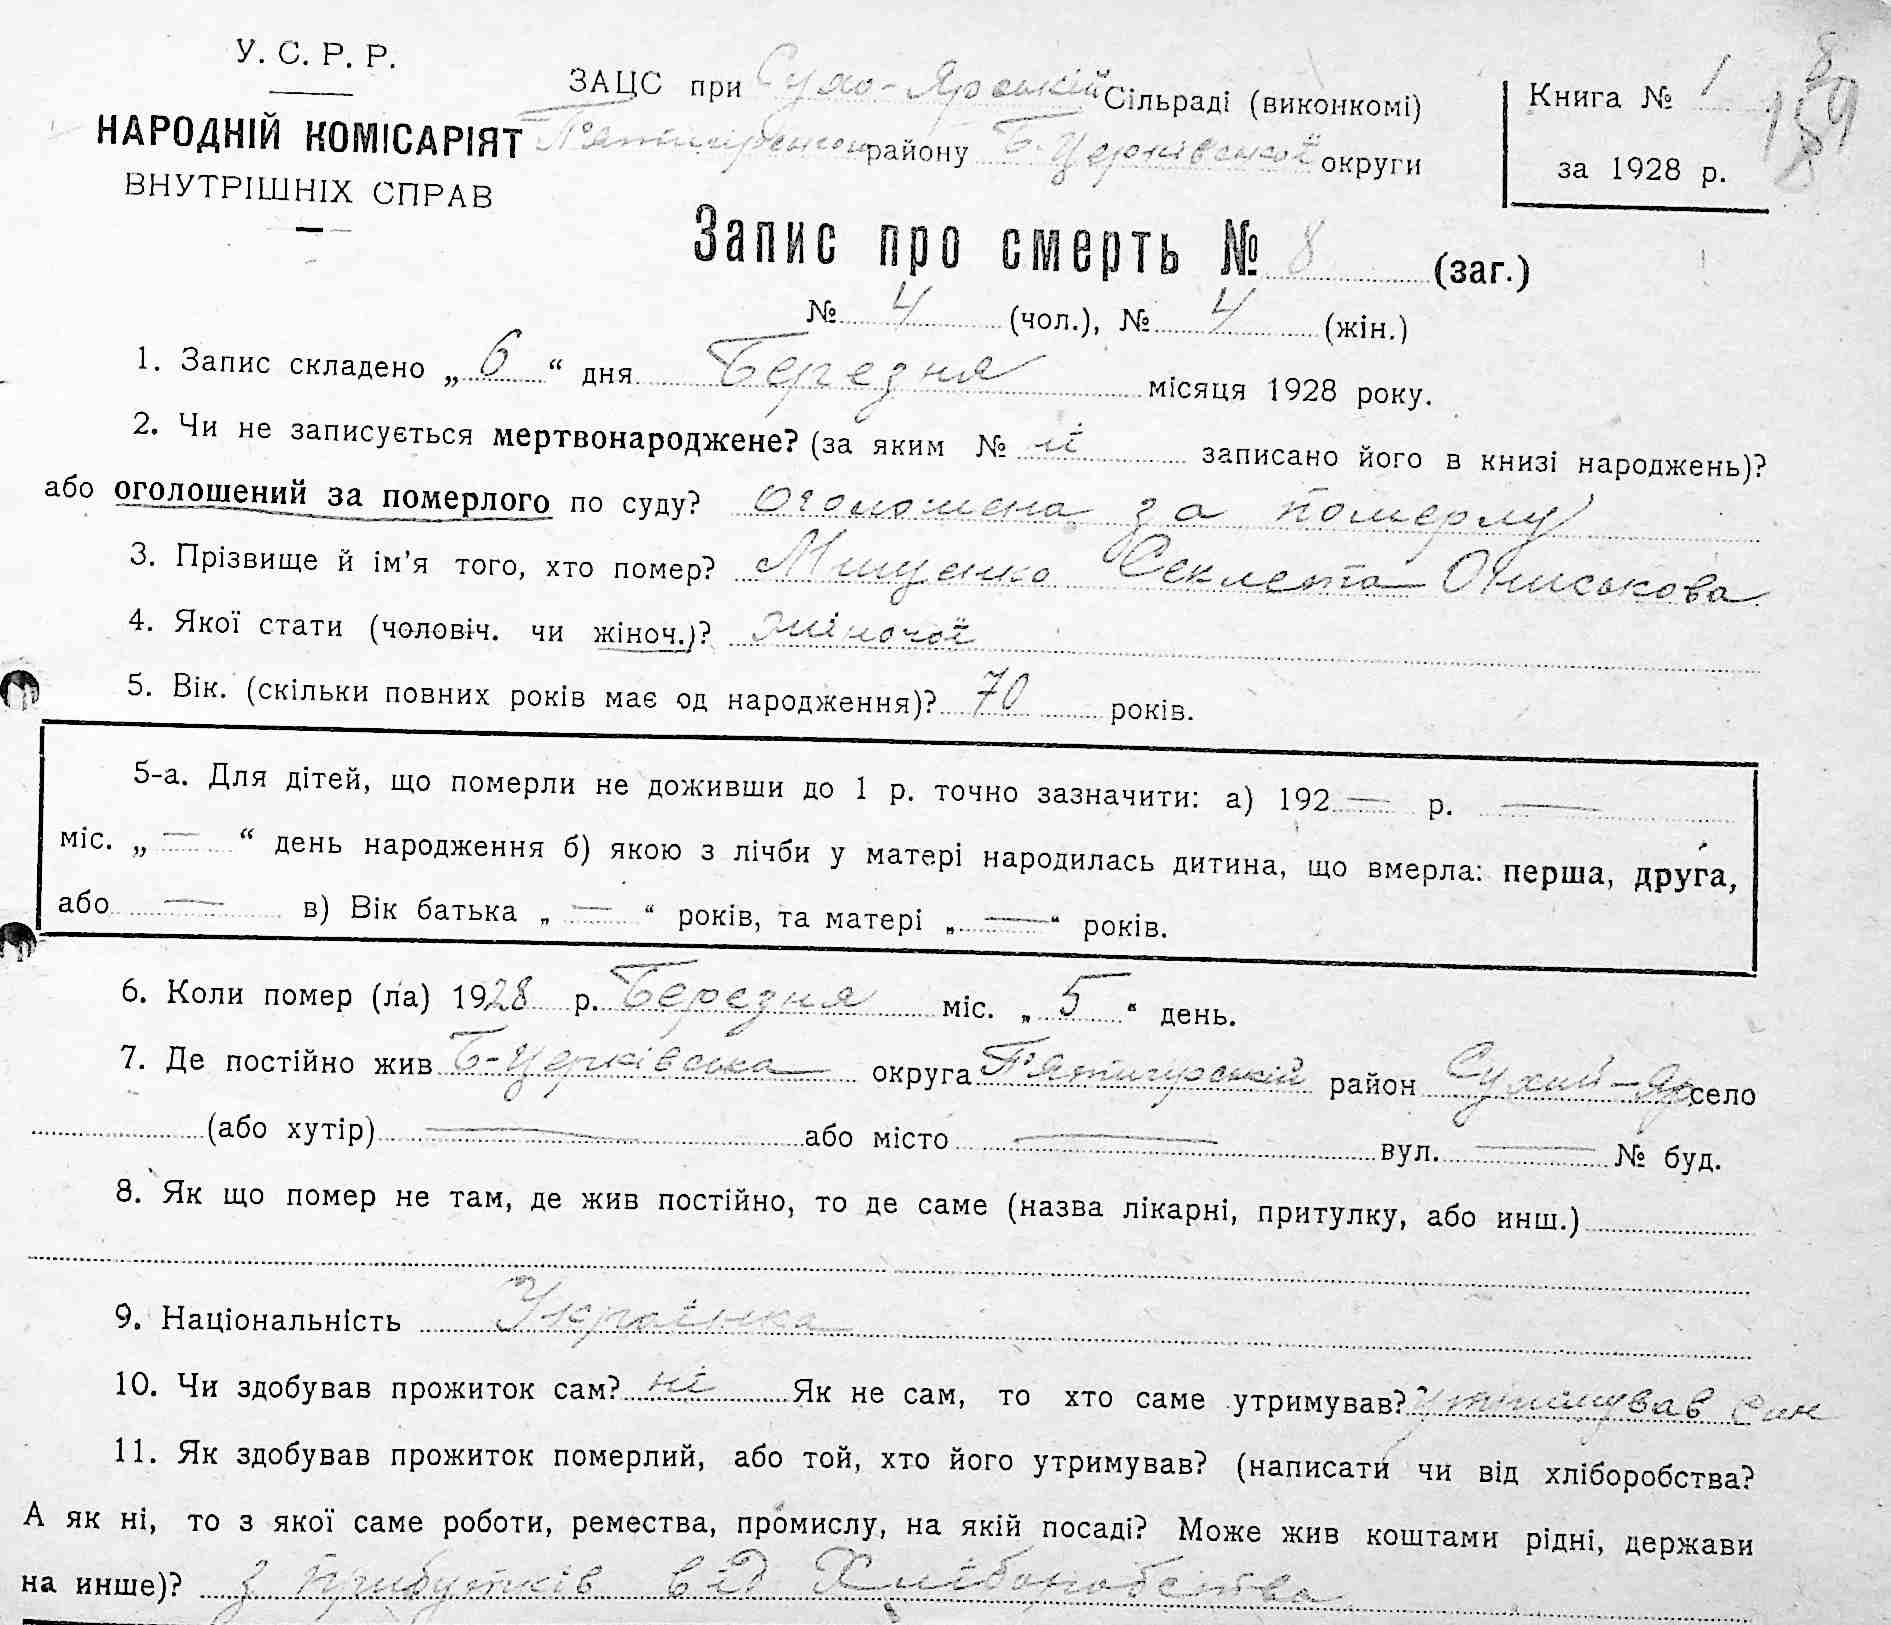 У. С. Р. Р.
НАРОДНІЙ КОМІСАРІЯТ
ВНУТРІШНІХ СПРАВ
ЗАЦС при Сухо-Ярській Сільраді (виконкомі)
П'ятигірського району Б-Церківської округи
Книга № 1
за 1928 р.
Запис про смерть № 8 (заг.)
№ 4 (чол.), № 4 (жін.)
1. Запис складено „ 6 “ дня Березня місяця 1928 року.
2. Чи не записується мертвонароджене? (за яким № ні записано його в книзі народжень)?
або оголошений за померлого по суду? оголошена за померлу
3. Прізвище й ім’я того, хто помер? Мищенко Секлета Ониськова
4. Якої стати (чоловіч. чи жіноч.)? жіночої
5. Вік. (скільки повних років має од народження)? 70 років.
5-а. Для дітей, що померли не доживши до 1 р. точно зазначити: а) 192 — р. —
міс. „ — “ день народження б) якою з лічби у матері народилась дитина, що вмерла: перша, друга,
або — в) Вік батька „ — “ років, та матері „ — “ років.
6. Коли помер (ла) 1928 р. Березня міс. „ 5 “ день.
7. Де постійно жив Б-Церківська округа П'ятигірський район Сухий-Яр село
(або хутір) — або місто — вул. — № буд.
8. Як що помер не там, де жив постійно, то де саме (назва лікарні, притулку, або инш.)
9. Національність Українка
10. Чи здобував прожиток сам? ні Як не сам, то хто саме утримував? утримував син
11. Як здобував прожиток померлий, або той, хто його утримував? (написати чи від хліборобства?
А як ні, то з якої саме роботи, ремества, промислу, на якій посаді? Може жив коштами рідні, держави
на инше)? з прибутків від Хліборобства